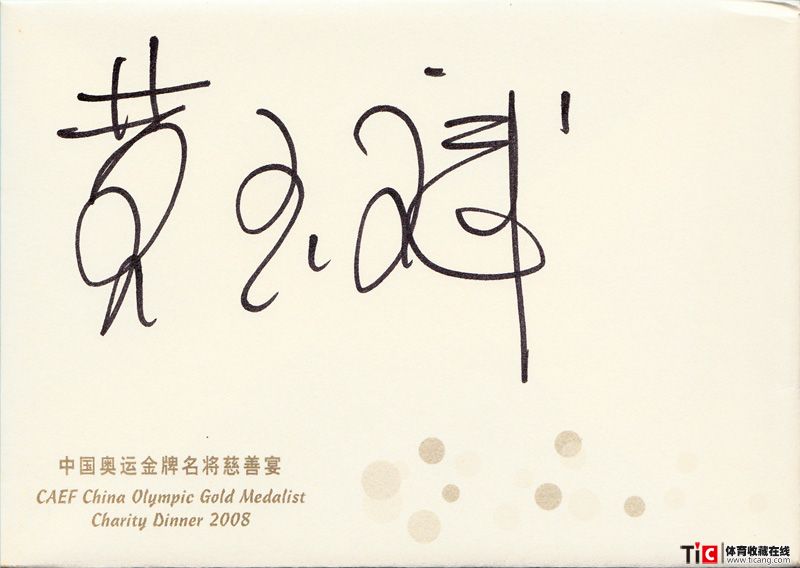 黄玉斌
中国奥运金牌名将慈善宴
CAEF China Olympic Gold Medalist
Charity Dinner 2008
TiC 体育收藏在线
www.ticang.com